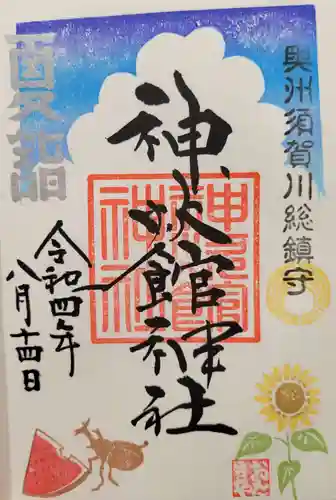 奥州須賀川総鎮守
神炊館神社
神炊館神社
令和四年
八月十四日